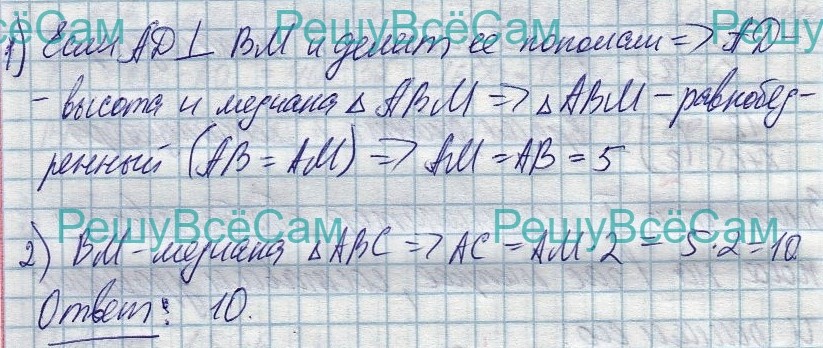 РешуВсёСам РешуВсёСам РешуВсёСам
1) Если AD⊥ BM и делит её пополам => AD -
- высота и медиана △ ABM => △ABM - равнобед-
ренный (AB = AM) => AM = AB = 5
РешуВсёСам РешуВсёСам
2) BM - медиана △ABC => AC = AM·2 = 5·2=10
Ответ: 10.